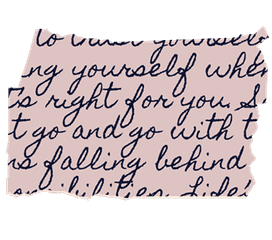 to trust yourself
ng yourself when
's right for you. S
t go and go with t
ns falling behind
onsibilities. Life'